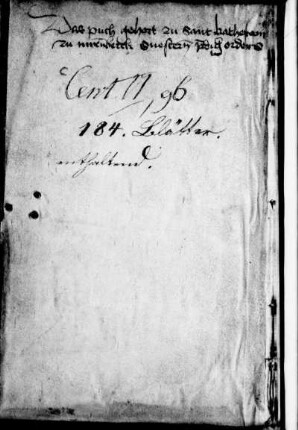 Das puch gehort zu sant kathereyn
zu nurenberch Swestern prediger ordens
Cent VI, 96
184. Blätter.
enthaltend.